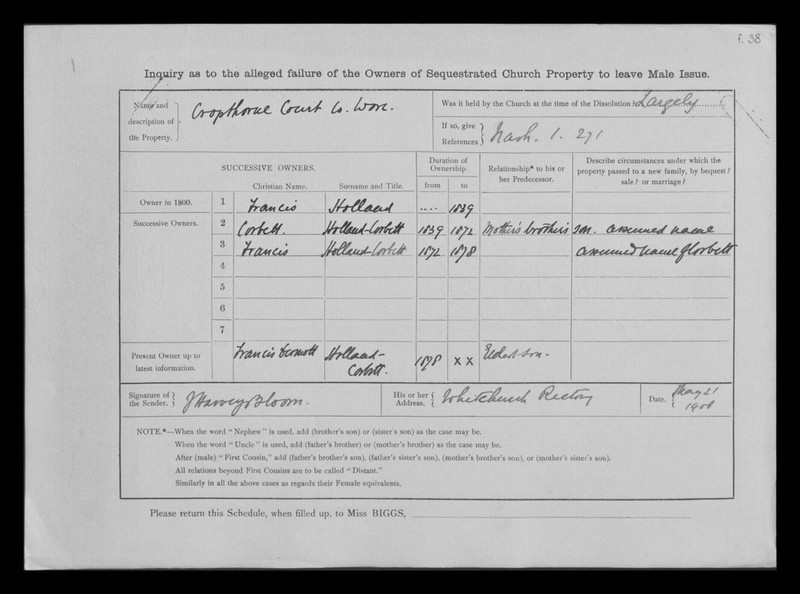 f. 38
Inquiry as to the alleged failure of the Owners of Sequestrated Church Property to leave Male Issue.
Name and description of the Property. Cropthorne Court Co. Worc.
Was it held by the Church at the time of the Dissolution? Largely
If so, give References Nash. 1. 271
SUCCESSIVE OWNERS.
Christian Name. Surname and Title.
Duration of Ownership
from to
Relationship* to his or her Predecessor.
Describe circumstances under which the property passed to a new family, by bequest? sale? or marriage?
Owner in 1800. 1 Francis Holland .... 1839
Successive Owners. 2 Corbett. Holland-Corbett 1839 1872 Mother's brother's son. assumed name
3 Francis Holland-Corbett 1872 1878 assumed name of Corbett
4
5
6
7
Present Owner up to latest information. Francis Holland-Corbett. 1878 x x Eldest son.
Signature of the Sender. J Harvey Bloom.
His or her Address. Whitchurch Rectory
Date. May 21 1908
NOTE.*—When the word "Nephew" is used, add (brother's son) or (sister's son) as the case may be.
When the word "Uncle" is used, add (father's brother) or (mother's brother) as the case may be.
After (male) "First Cousin," add (father's brother's son), (father's sister's son), (mother's brother's son), or (mother's sister's son).
All relations beyond First Cousins are to be called "Distant."
Similarly in all the above cases as regards their Female equivalents.
Please return this Schedule, when filled up, to Miss BIGGS,